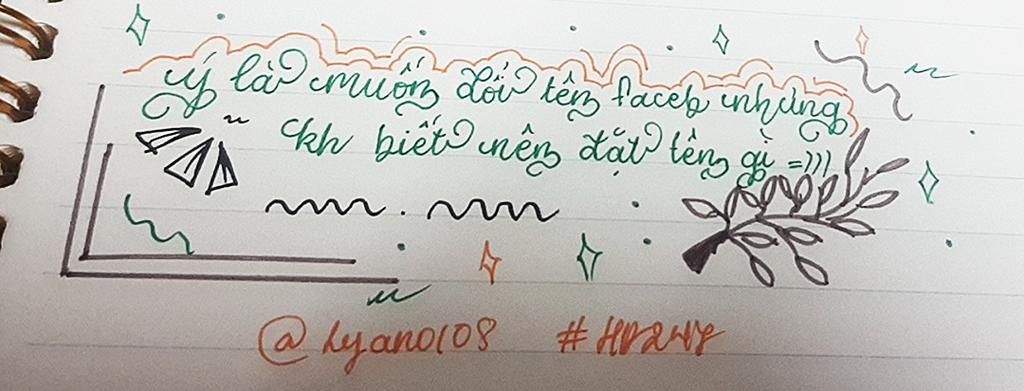 ý là muốn đổi tên faceb nhưng
kh biết nên đặt tên gì =)))
@lyano108